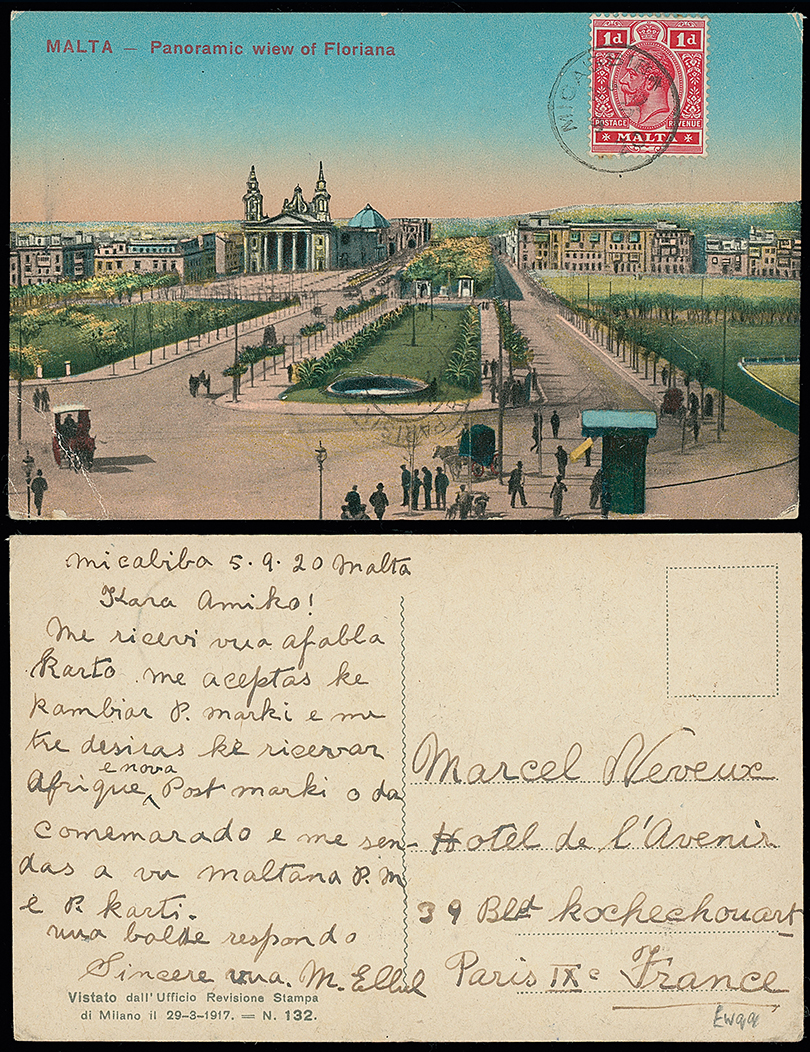 MALTA — Panoramic wiew of Floriana
1d 1d
POSTAGE REVENUE
MALTA
PARIS
Micabiba 5.9.20 Malta
Kara Amiko!
Me ricevi vua afabla
Karto me aceptas ke
kambiar P. marki e me
tre desiras ke ricevar
e nova
Afrique Post marki o da
comemarado e me sen-
das a vu maltana P. M
e P. karti.
vua balde respondo
Sincere vua. M. Ellul
Vistato dall' Ufficio Revisione Stampa
di Milano il 29-3-1917. = N. 132.
Marcel Neveux
Hotel de l'Avenir
39 Bld kochechouart
Paris IXe France